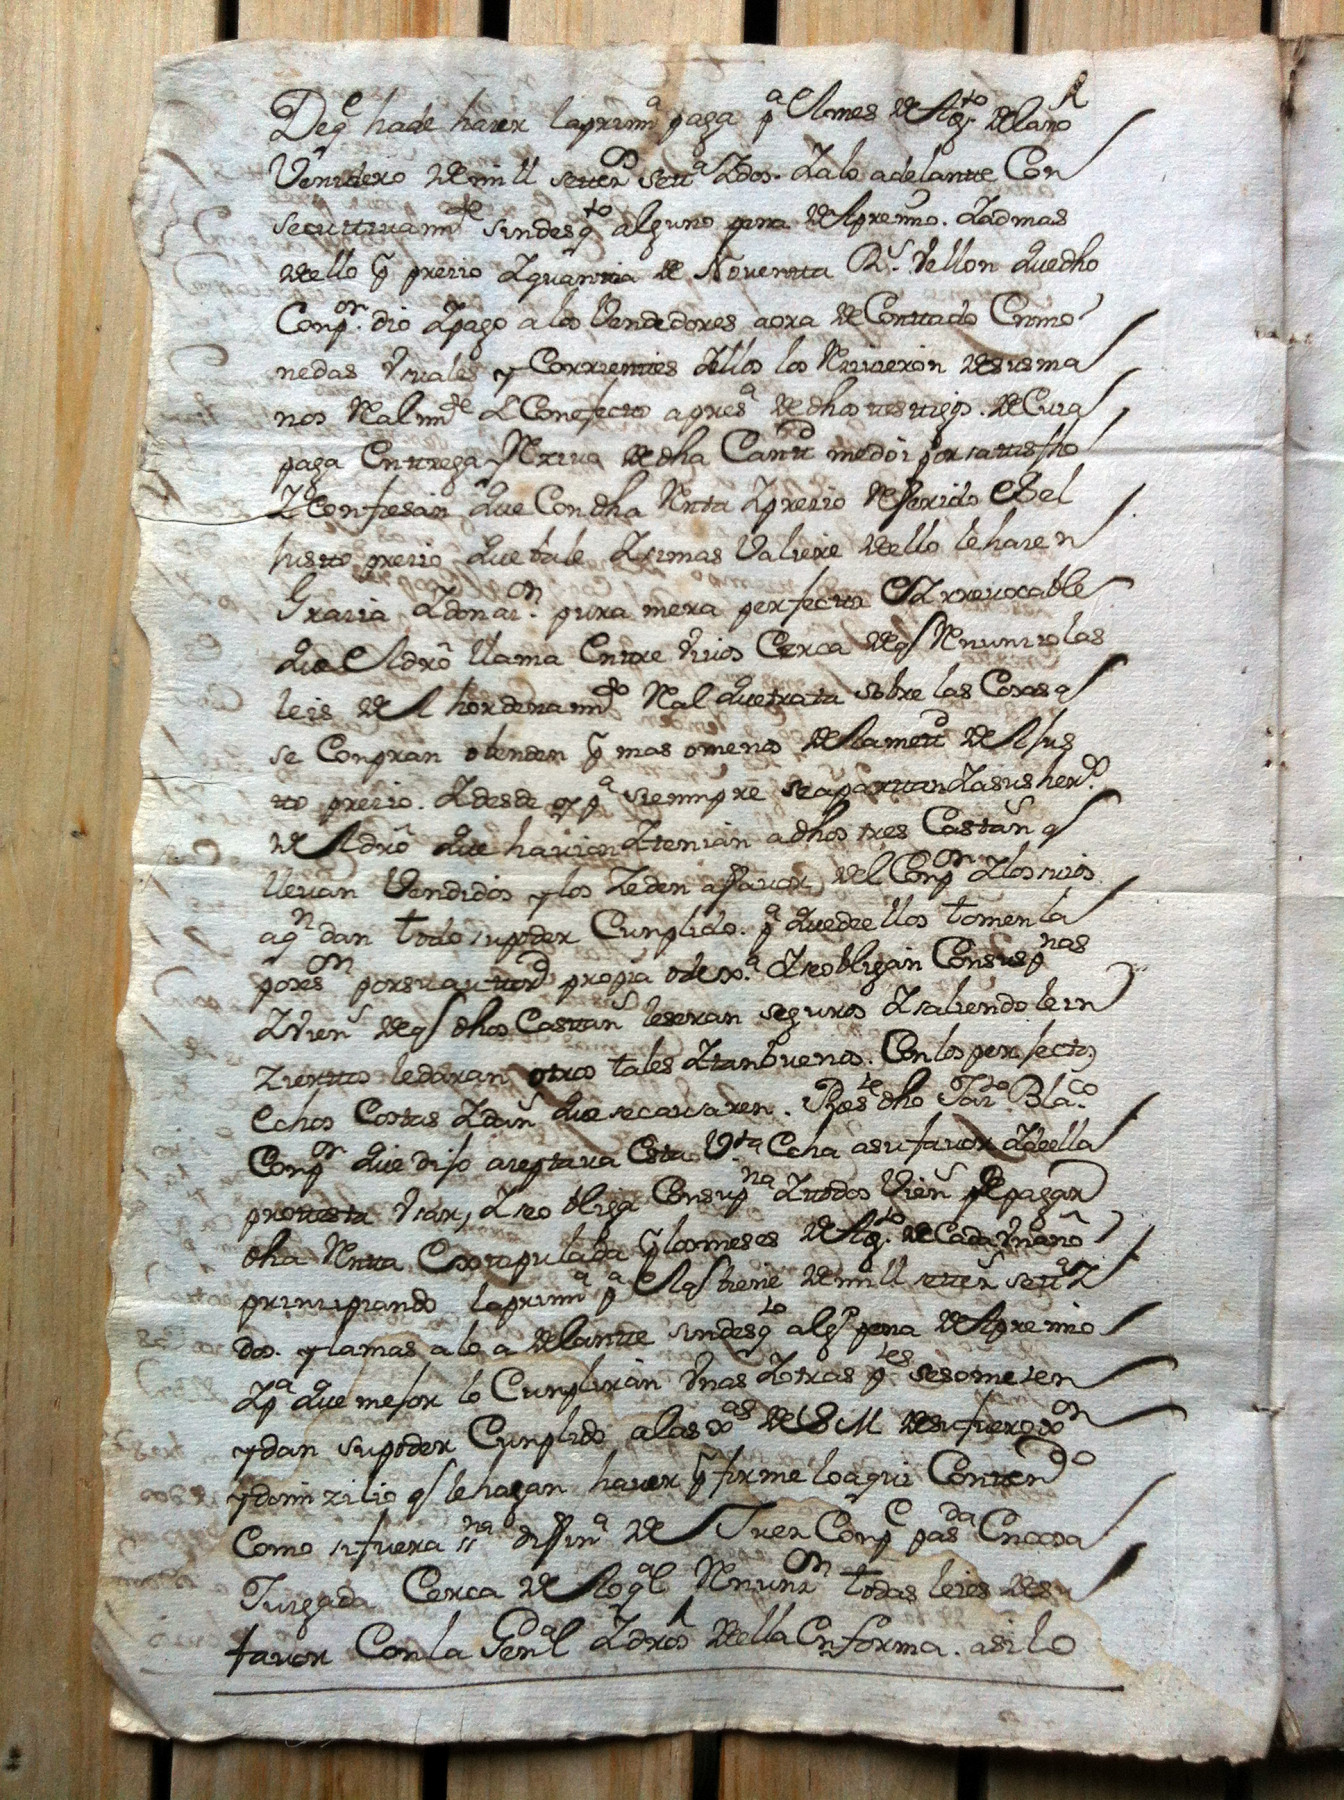 Deq^e hade haver laprim^a paga p^a elmes de Ag^to delaño
Venidero de mill setez^os sett^a Y dos. Yalo adelantte Con
secuttivam^te sindesq^to alguno pena de Apremio. Yadmas
dello p^r precio Yquantia de Noventta R^s Vellon que dho
Conp^or dio Ypago a los Vendedores aora de Conttado En mo
nedas Usuales y Corrienttes Yellos los Rezivieron desus ma
nos Realm^te Y Conefecto apres^a de dhos ttesttigos. de Cuia
paga Enttrega y Reziva de dha Cantt^d medoi por sattisfho
Y Confiesan que Con dha Rentta Y precio Referido Es el
justto precio que bale Y si mas Valiere dello le hacen
Gracia Ydonaz^on pura mera perfectta E Yrrevocable
que el dro llama Entre vivos Cerca de q^e Renuncio las
leis del hordenam^to Real que trata sobre las Cosas q^e
se Conpran o benden p^r mas o menos de la mett^d del jus
tto precio. Ydesde oy p^a siempre se aparttan Yasus hered^os
del dro que havian Y tenian adhos tres Casttañ^s q^e
llevan Vendidos y los Zeden a favor del Conp^or Ylos suios
aq^n dan todo su poder Cunplido. p^a que de ellos tomen la
poses^on por su auttorid^d propia o de Jux^a Yseobligan Con sus p^nas
Yvien^s de q^e dhos Casttañ^s leseran seguros Y saliendole in
Ziertos le daran otros tales Y tan buenos. Con los perfectos
echos Costas Y dañ^s que se causaren. Pres^te dho Ju^o Bla^co
Conp^or que dijo azeptava Esta V^ta Echa asu favor Y de ella
protesta Usar, Y se obliga Con sup^na Y ttodos Vien^s de pagar
dha Rentta Esttipulada p^r los meses de Ag^to de Cada Un año
principiando la prim^a p^a el q^e biene de mill settez^s sett^a Y
dos. y lamas alo adelantte sindesq^to alg^o pena de Apremio
Yp^a que mejor lo Cunpliran Unas Y otras p^tes se someten
y dan su poder Cunplido alas Jux^as de S M de su fuero Jux^on
y domizilio q^e le hagan haver p^r firme lo aqui Conten^do
Como si fuera s^na difin^a de Juez Conp^e pas^da En cosa
Juzgada Cerca de lo q^l Renunz^on todas leies de su
favor Con la Gen^l Y dros della En forma. asilo